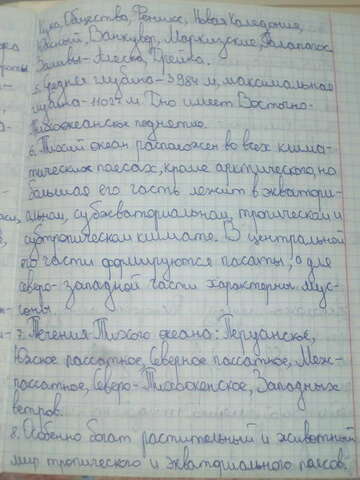 Общества, Феникс, Новая Каледония,
Южный, Ванкувер, Маркизские, Галапагос.
Заливы - Аляска, Дрейка.
5. Средняя глубина - 3984 м, максимальная
глубина - 11024 м. Дно имеет Восточно-
Тихоокеанское поднятие.
6. Тихий океан расположен во всех клима-
тических поясах, кроме арктического, но
большая его часть лежит в экватори-
альном, субэкваториальном, тропическом и
субтропическом климате. В центральной
его части формируются пассаты, а для
северо-западной части характерны мус-
соны.
7. Течения Тихого океана: Перуанское,
Южное пассатное, Северное пассатное, Меж-
пассатное, Северо-Тихоокенское, Западных
ветров.
8. Особенно богат растительный и животный
мир тропического и экваториального поясов.